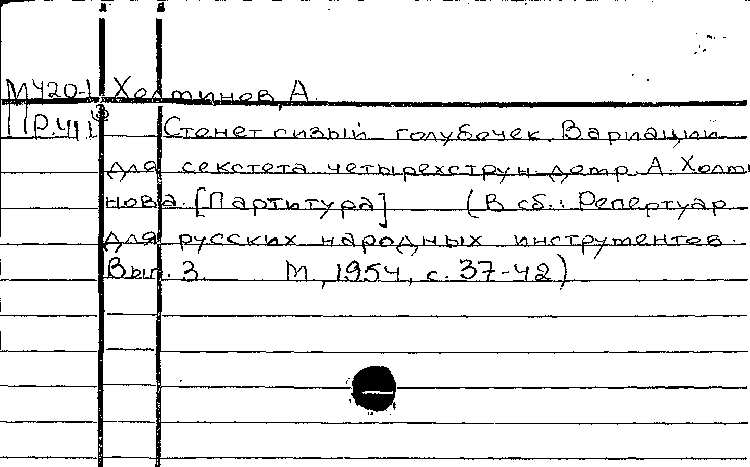 М420-1 Холминов, А.
Стонет сизый голубочек. Вариации
для секстета четырехструн. домр А. Холми
нова. [Партитура] (В сб.: Репертуар
для русских народных инструментов.
Вып. 3. М., 1954, с. 37-42)